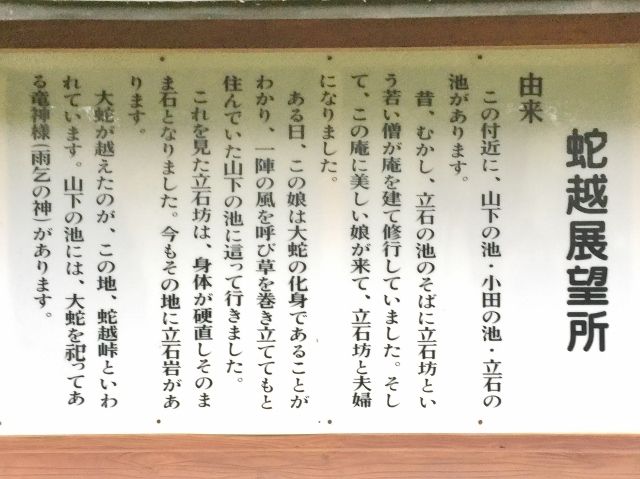 蛇越展望所
由来
この付近に、山下の池・小田の池・立石の
池があります。
昔、むかし、立石の池のそばに立石坊とい
う若い僧が庵を建て修行していました。そし
て、この庵に美しい娘が来て、立石坊と夫婦
になりました。
ある日、この娘は大蛇の化身であることが
わかり、一陣の風を呼び草を巻き立ててもと
住んでいた山下の池に這って行きました。
これを見た立石坊は、身体が硬直しそのま
ま石となりました。今もその地に立石岩があ
ります。
大蛇が越えたのが、この地、蛇越峠といわ
れています。山下の池には、大蛇を祀ってあ
る竜神様（雨乞の神）があります。